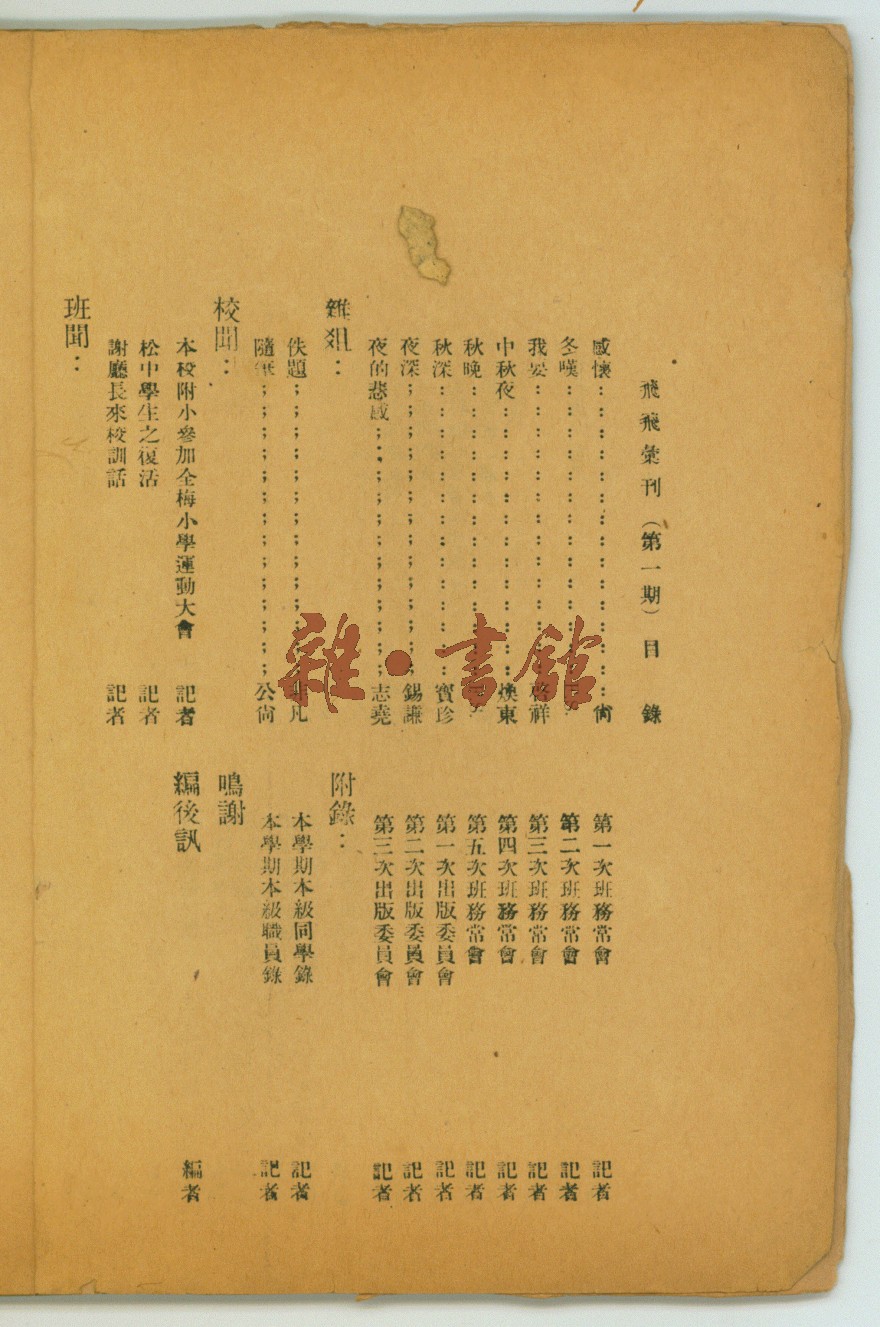 飛飛彙刊（第一期）目錄
感懷：：：：：：：：：：：：：：尙
冬嘆：：：：：：：：：：：：：：
我要：：：：：：：：：：：：：：啓祥
中秋夜：：：：：：：：：：：：：煥東
秋晚：：：：：：：：：：：：：：
秋深：：：：：：：：：：：：：：寶珍
夜深；；；；；；；；；；；；；；錫謙
夜的悲感；；；；；；；；；；；；志堯
雜俎：
佚題；；；；；；；；；；；；；；非凡
隨筆；；；；；；；；；；；；；；公尙
校聞：
本校附小參加全梅小學運動大會 記者
松中學生之復活 記者
謝廳長來校訓話 記者
班聞：
第一次班務常會 記者
第二次班務常會 記者
第三次班務常會 記者
第四次班務常會 記者
第五次班務常會 記者
第一次出版委員會 記者
第二次出版委員會 記者
第三次出版委員會 記者
附錄：
本學期本級同學錄 記者
本學期本級職員錄 記者
鳴謝
編後訊 編者
雜·書館